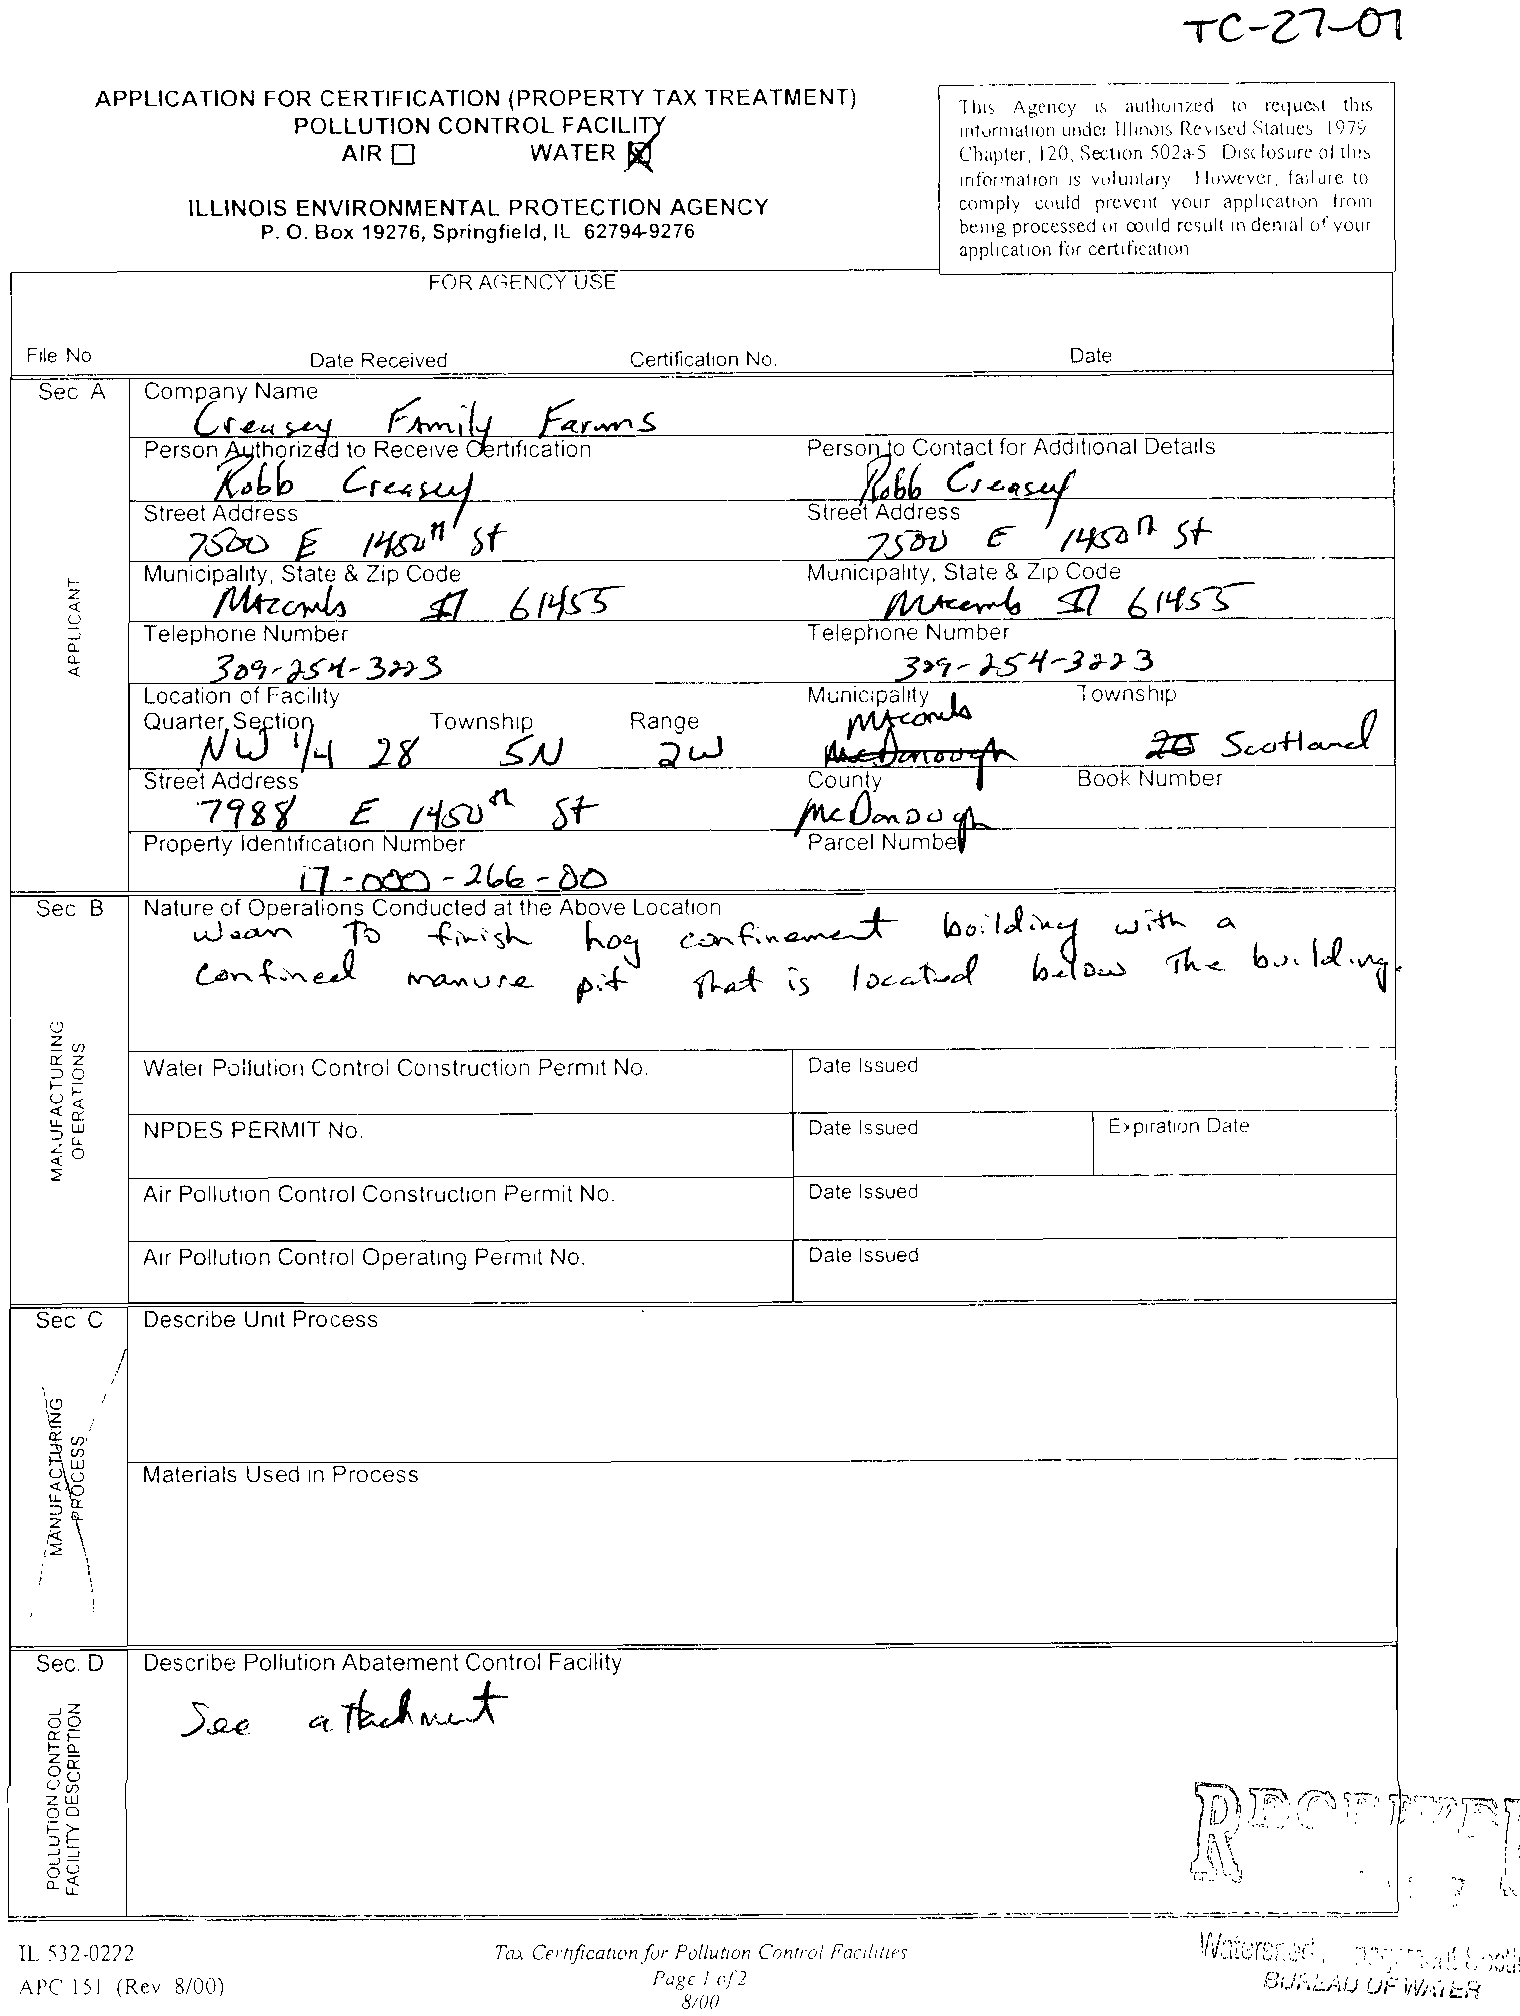 TC-27-07
APPLICATION FOR CERTIFICATION (PROPERTY TAX TREATMENT)
POLLUTION CONTROL FACILITY
AIR ☐ WATER ☒
ILLINOIS ENVIRONMENTAL PROTECTION AGENCY
P. O. Box 19276, Springfield, IL 62794-9276
This Agency is authorized to request this
information under Illinois Revised Statues 1979
Chapter, 120, Section 502a-5 Disclosure of this
information is voluntary However, failure to
comply could prevent your application from
being processed or could result in denial of your
application for certification
FOR AGENCY USE
File No Date Received Certification No. Date
Sec A
APPLICANT
Company Name
Creasey Family Farms
Person Authorized to Receive Certification Person to Contact for Additional Details
Robb Creasey Robb Creasey
Street Address Street Address
7500 E 1450th St 7500 E 1450th St
Municipality, State & Zip Code Municipality, State & Zip Code
Macomb Il 61455 Macomb Il 61455
Telephone Number Telephone Number
309-254-3223 309-254-3223
Location of Facility Municipality Township
Quarter Section Township Range Macomb
NW 1/4 28 5N 2W McDonough Scotland
Street Address County Book Number
7988 E 1450th St McDonough
Property Identification Number Parcel Number
17-000-266-00
Sec B
MANUFACTURING
OPERATIONS
Nature of Operations Conducted at the Above Location
Wean To finish hog confinement building with a
confined manure pit that is located below the building.
Water Pollution Control Construction Permit No. Date Issued
NPDES PERMIT No. Date Issued Expiration Date
Air Pollution Control Construction Permit No. Date Issued
Air Pollution Control Operating Permit No. Date Issued
Sec C
MANUFACTURING
PROCESS
Describe Unit Process
Materials Used in Process
Sec. D
POLLUTION CONTROL
FACILITY DESCRIPTION
Describe Pollution Abatement Control Facility
See attachment
RECEIVE
IL 532-0222
APC 151 (Rev 8/00)
Tax Certification for Pollution Control Facilities
Page 1 of 2
8/00
Watershed
BUREAU OF WATER